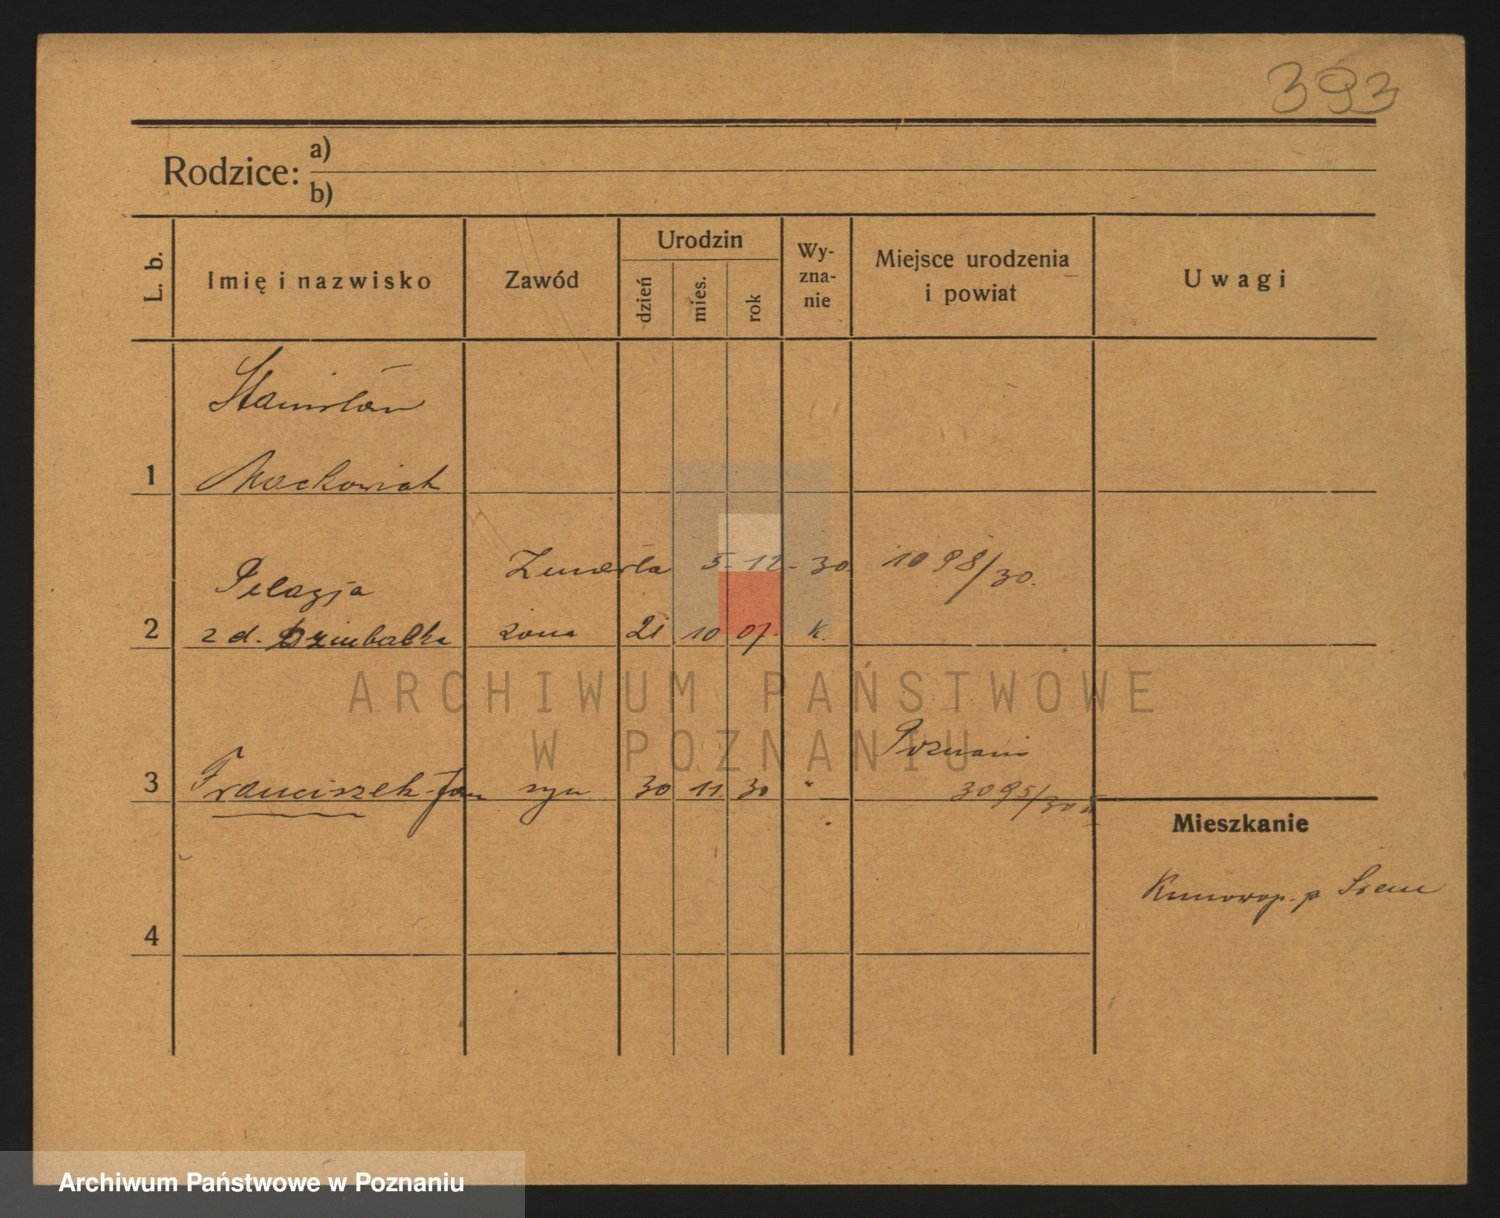 393
Rodzice: a)
b)
L. b. Imię i nazwisko Zawód Urodzin dzień mies. rok Wy-zna-nie Miejsce urodzenia i powiat Uwagi
Stanisław
1 Maćkowiak
Pelagja Zmarła 5-12-30 1098/30.
2 z d. żona 21 10 07. k.
ARCHIWUM PAŃSTWOWE
W POZNANIU
Poznań
3 Franciszek-Jan syn 30 11 30 " 3095/30
Mieszkanie
p Śrem
4
Archiwum Państwowe w Poznaniu